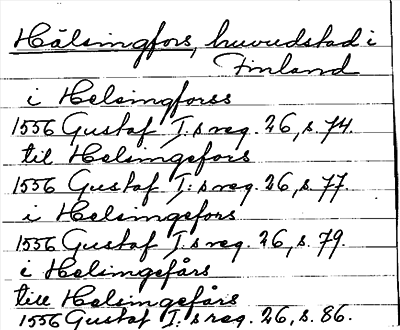 Hälsingfors, huvudstad i
Finland
i Helsingforss
1556 Gustaf I:s reg. 26, s. 74.
til Helsingefors
1556 Gustaf I:s reg. 26, s. 77.
i Helsingefors
1556 Gustaf I:s reg. 26, s. 79.
i Helsingefårs
till Helsingefårs
1556 Gustaf I:s reg. 26, s. 86.